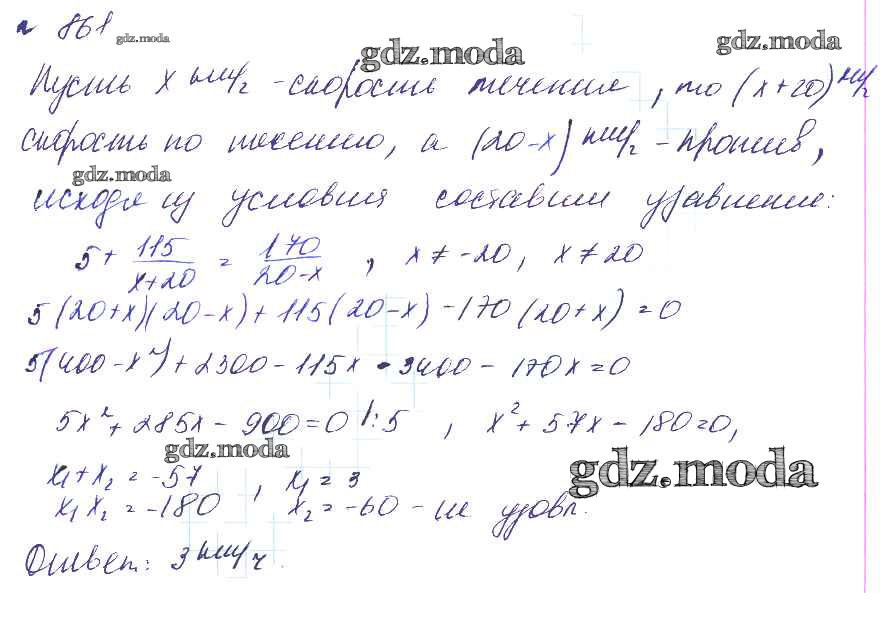 № 861
gdz.moda
gdz.moda
gdz.moda
Пусть x км/ч - скорость течения, то (x+20) км/ч
скорость по течению, а (20-x) км/ч - против,
gdz.moda
исходя из условия составим уравнение:
5 + 115/(x+20) = 170/(20-x) , x ≠ -20, x ≠ 20
5(20+x)(20-x) + 115(20-x) - 170(20+x) = 0
5(400-x²) + 2300 - 115x - 3400 - 170x = 0
5x² + 285x - 900 = 0 |:5 , x² + 57x - 180 = 0,
gdz.moda
gdz.moda
x₁+x₂ = -57 , x₁ = 3
x₁x₂ = -180 x₂ = -60 - не удовл.
Ответ: 3 км/ч.